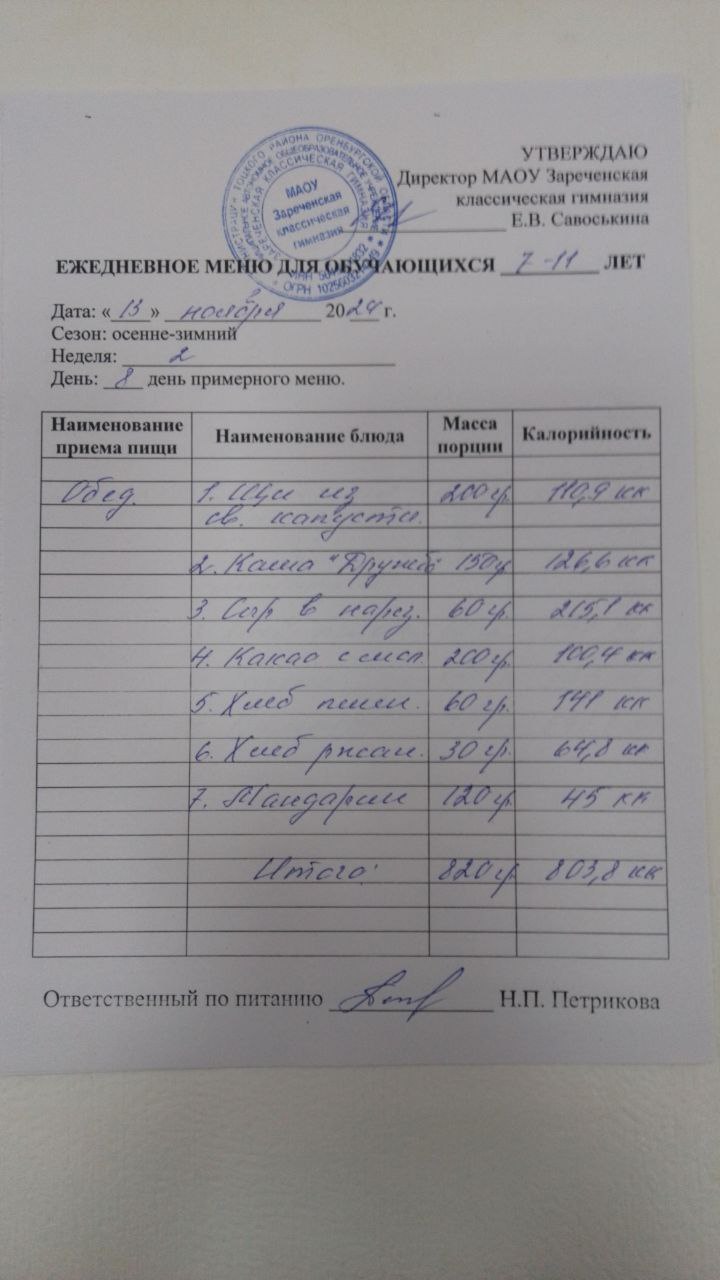 УТВЕРЖДАЮ
Директор МАОУ Зареченская
классическая гимназия
Е.В. Савоськина
МАОУ
Зареченская
классическая
гимназия
ЕЖЕДНЕВНОЕ МЕНЮ ДЛЯ ОБУЧАЮЩИХСЯ 7-11 ЛЕТ
Дата: «13» ноября 2024 г.
Сезон: осенне-зимний
Неделя: 2
День: 8 день примерного меню.
Наименование приема пищи Наименование блюда Масса порции Калорийность
Обед. 1. Щи из 200 гр. 110,9 кк
св. капусты.
2. Каша "Дружба" 150 гр 126,6 кк
3. Сыр в нарез. 60 гр. 215,1 кк
4. Какао с мол. 200 гр. 100,4 кк
5. Хлеб пшен. 60 гр. 141 кк
6. Хлеб ржан. 30 гр. 64,8 кк
7. Мандарин 120 гр. 45 кк
Итого: 820 гр 803,8 кк
Ответственный по питанию Н.П. Петрикова